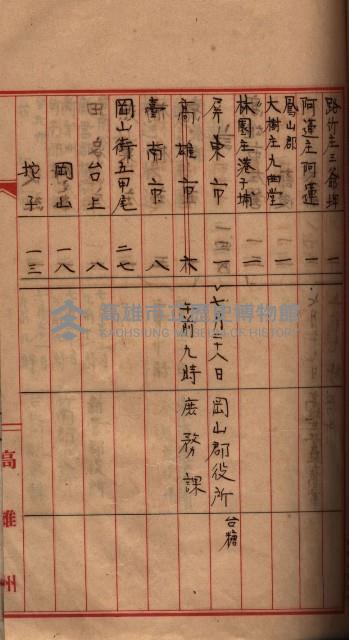 路竹庄三爺埤 一
阿蓮庄阿蓮 一
鳳山郡
大樹庄九曲堂 一
林園庄港子埔 一二
屏東市 一 七月二十八日 岡山郡役所 台糖
高雄市 六 午前九時 庶務課
臺南市 八
岡山街五甲尾 二七
台上 八
岡山 一八
挖子 一三
高雄州
高雄市立歷史博物館
KAOHSIUNG MUSEUM OF HISTORY